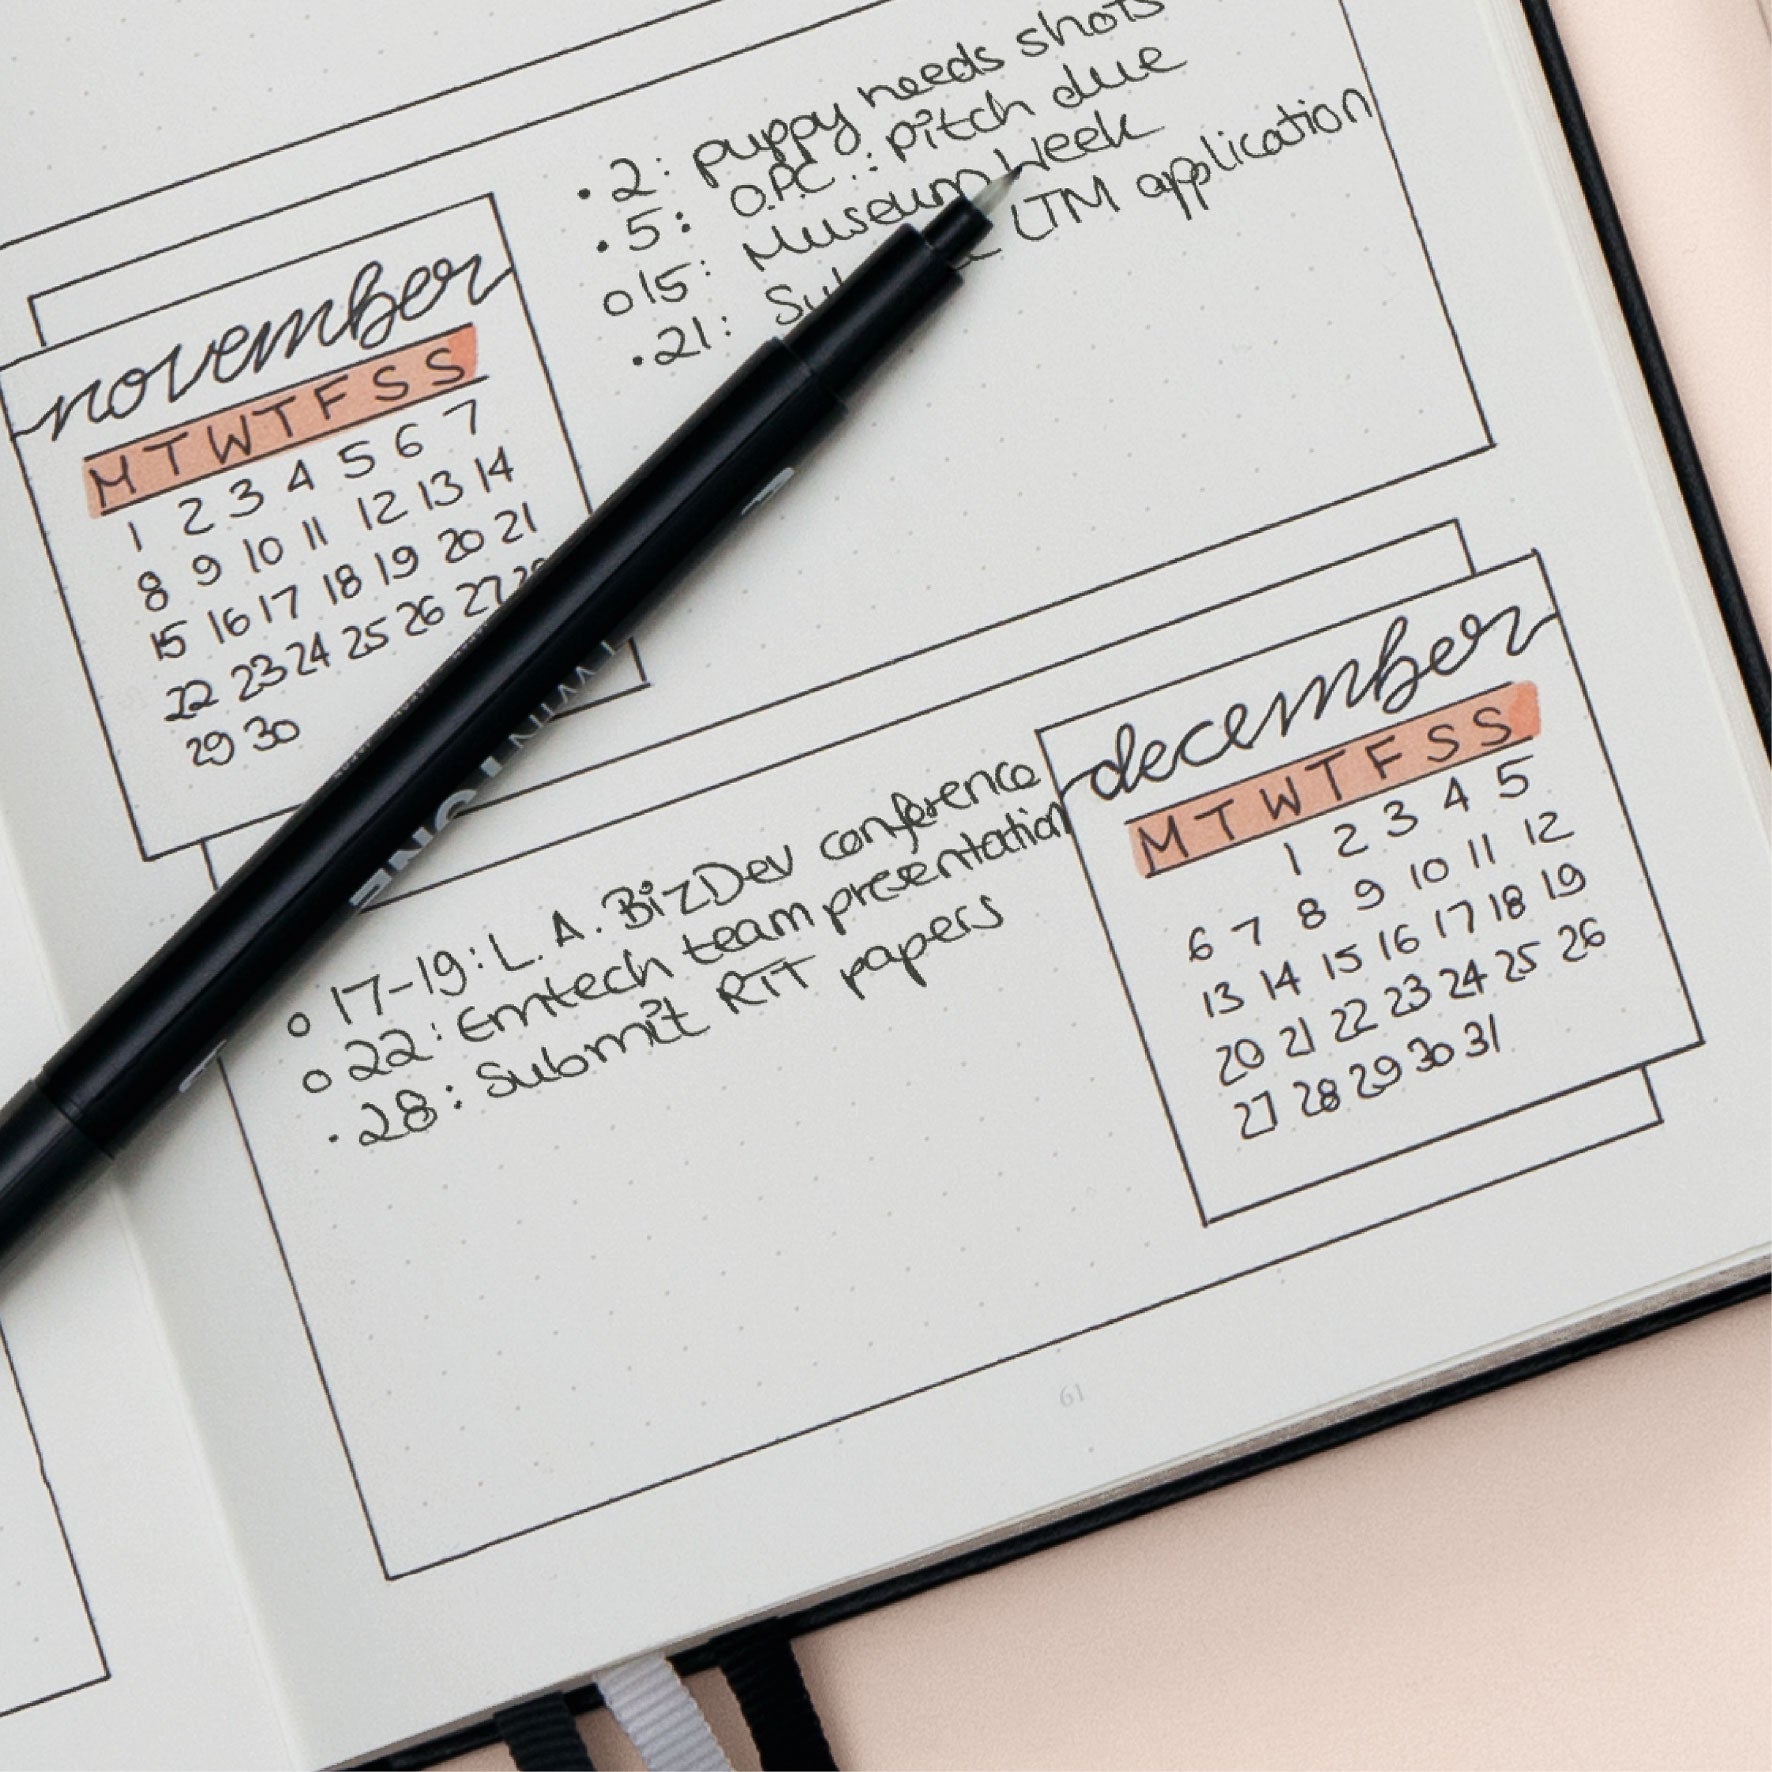 • 2: puppy needs shots
• 5: O.P.C.: pitch due
o 15: Museum Week
• 21: LTM application
november
M T W T F S S
1 2 3 4 5 6 7
8 9 10 11 12 13 14
15 16 17 18 19 20 21
22 23 24 25 26 27 28
29 30
december
M T W T F S S
1 2 3 4 5
6 7 8 9 10 11 12
13 14 15 16 17 18 19
20 21 22 23 24 25 26
27 28 29 30 31
o 17-19: L.A. BizDev conference
o 22: Emtech team presentation
• 28: Submit RTT papers
TWIN
61